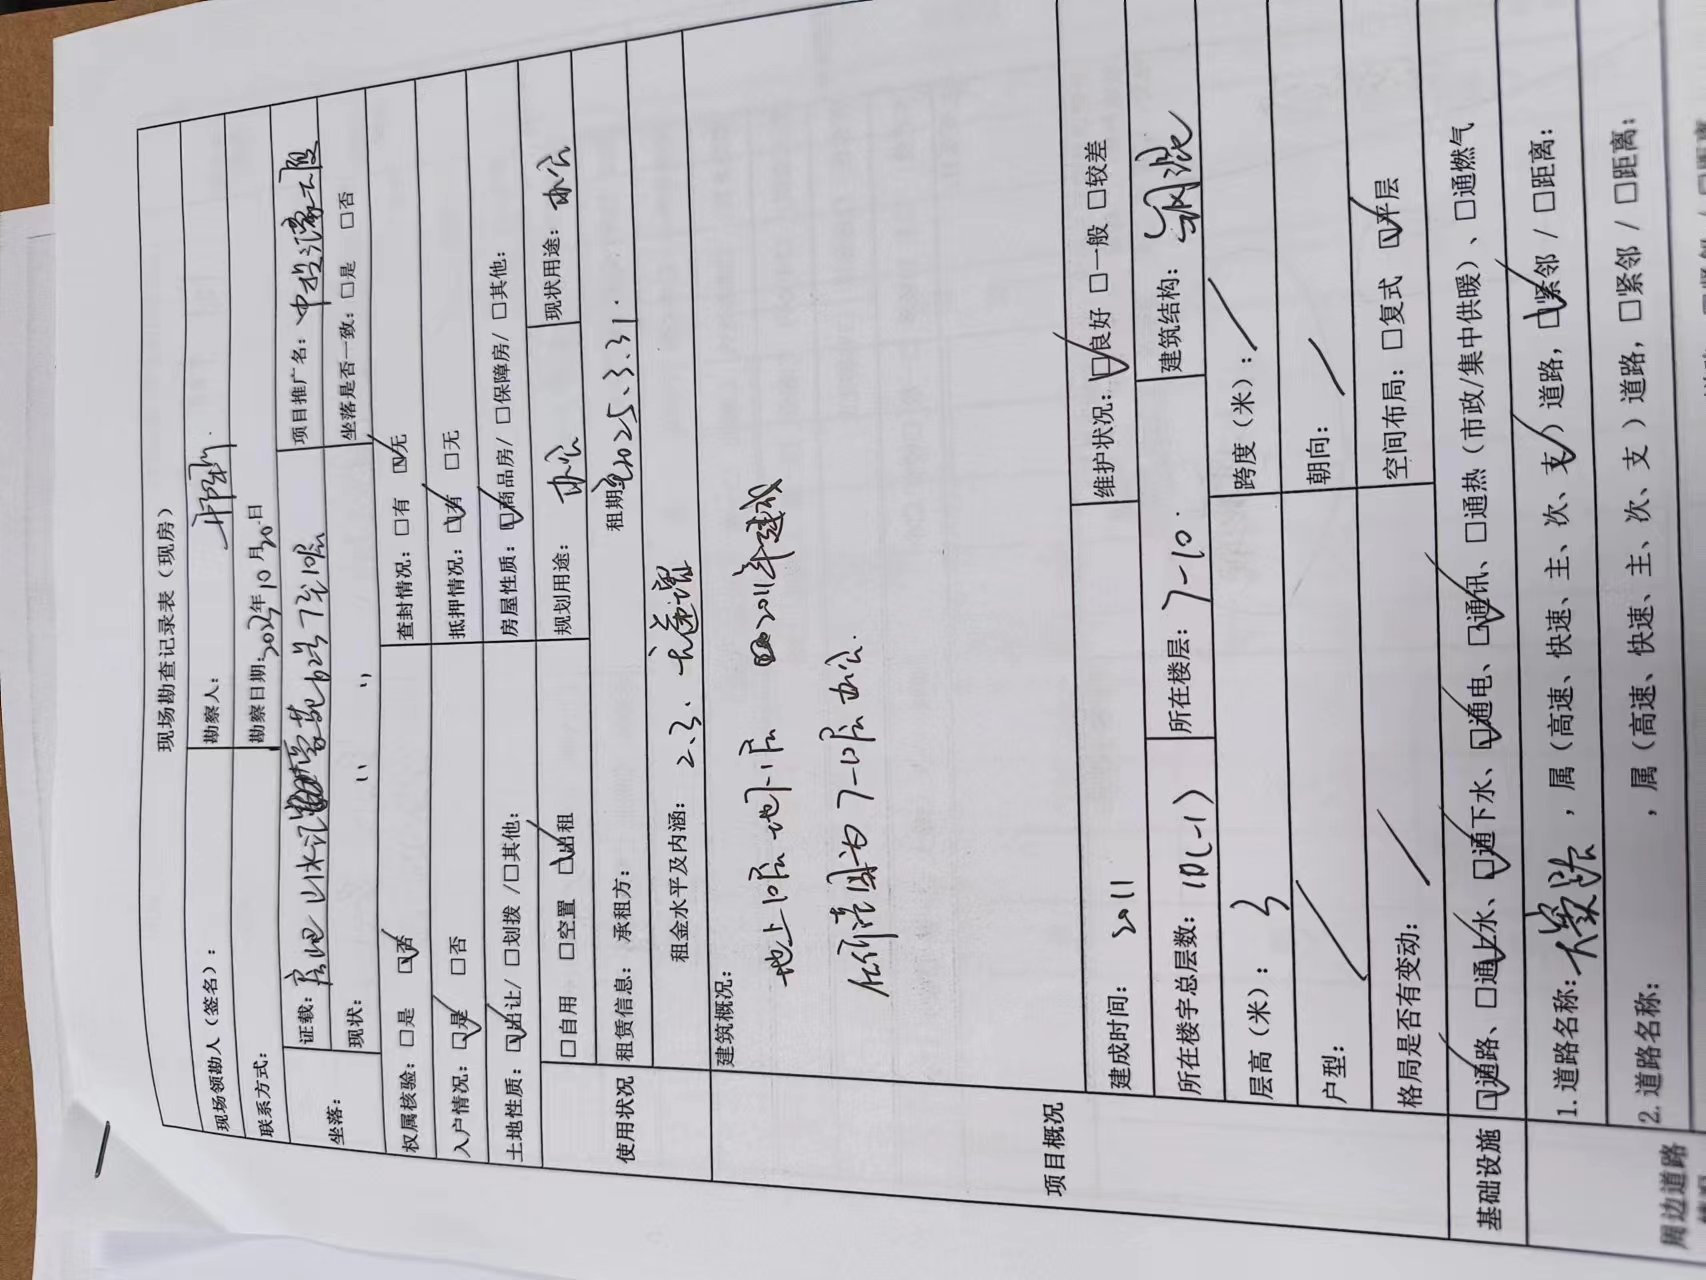 现场勘查记录表（现房）
现场领勘人（签名）： 勘察人：
联系方式： 勘察日期：2024年10月30日
坐落： 证载： 7至10层 项目推广名：中投
现状： 〃 〃 坐落是否一致：□是 □否
权属核验：□是 ☑否 查封情况：□有 ☑无
入户情况：☑是 □否 抵押情况：☑有 □无
土地性质：☑出让/□划拨/□其他： 房屋性质：☑商品房/□保障房/□其他：
使用状况 □自用 □空置 ☑出租 规划用途：办公 现状用途：办公
租赁信息： 承租方： 租期：至2025.3.31.
租金水平及内涵：2.3. 无递增
项目概况 建筑概况：
地上10层 地下1层 2011年建成
7-10层 办公.
建成时间：2011 维护状况：☑良好 □一般 □较差
所在楼宇总层数：10(-1) 所在楼层：7-10. 建筑结构：钢混
层高（米）：3 跨度（米）：/
户型：/ 朝向：/
格局是否有变动：/ 空间布局：□复式 ☑平层
基础设施 ☑通路、☑通上水、☑通下水、☑通电、☑通讯、□通热（市政/集中供暖）、□通燃气
周边道路 1.道路名称： ，属（高速、快速、主、次、支✓）道路，☑紧邻/□距离：
2.道路名称： ，属（高速、快速、主、次、支）道路，□紧邻/□距离：